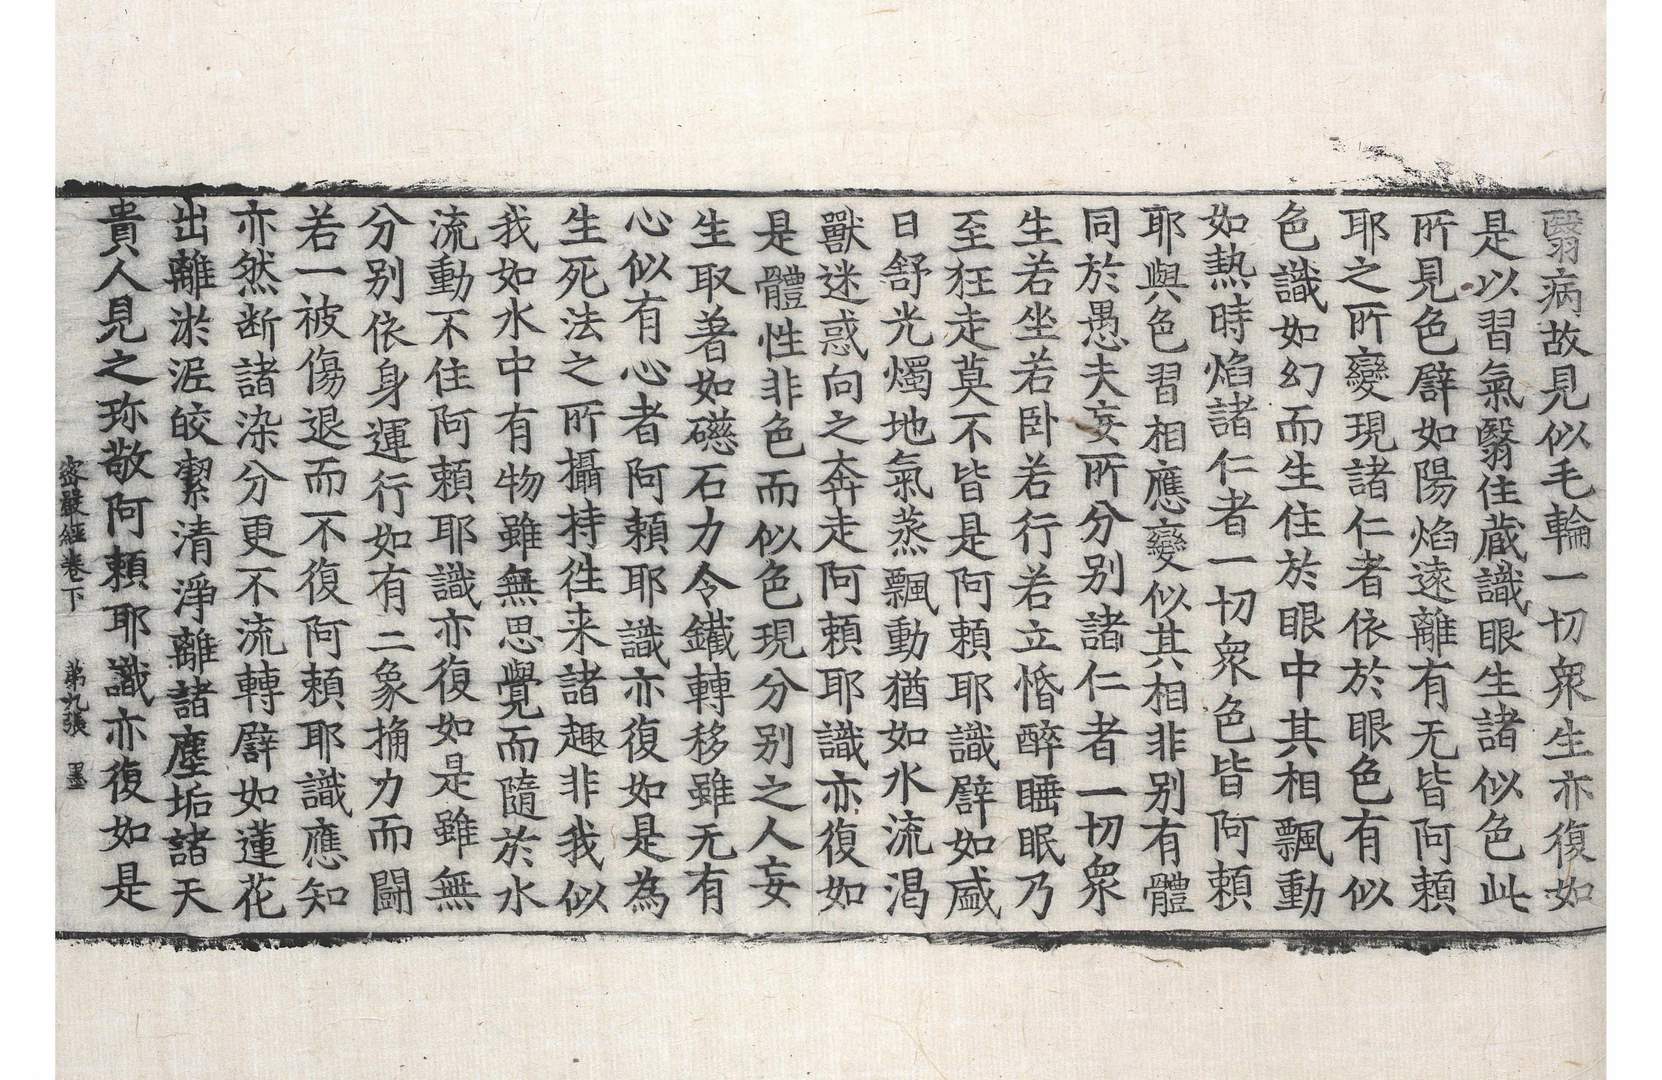 翳病故見似毛輪一切衆生亦復如
是以習氣翳住蔵識眼生諸似色此
所見色譬如陽焰遠離有无皆阿賴
耶之所變現諸仁者依於眼色有似
色識如幻而生住於眼中其相飄動
如熱時焰諸仁者一切衆色皆阿賴
耶與色習相應變似其相非别有體
同於愚夫妄所分别諸仁者一切衆
生若坐若卧若行若立惛醉睡眠乃
至狂走莫不皆是阿賴耶識譬如盛
日舒光燭地氣蒸飄動猶如水流渴
獸迷惑向之奔走阿賴耶識亦復如
是體性非色而似色現分别之人妄
生取著如礠石力令鐵轉移雖无有
心似有心者阿賴耶識亦復如是為
生死法之所攝持徃来諸趣非我似
我如水中有物雖無思覺而隨於水
流動不住阿賴耶識亦復如是雖無
分别依身運行如有二象捔力而鬪
若一被傷退而不復阿賴耶識應知
亦然断諸染分更不流轉譬如蓮花
出離淤泥皎潔清淨離諸塵垢諸天
貴人見之珎敬阿賴耶識亦復如是
密嚴經卷下 第九張 墨